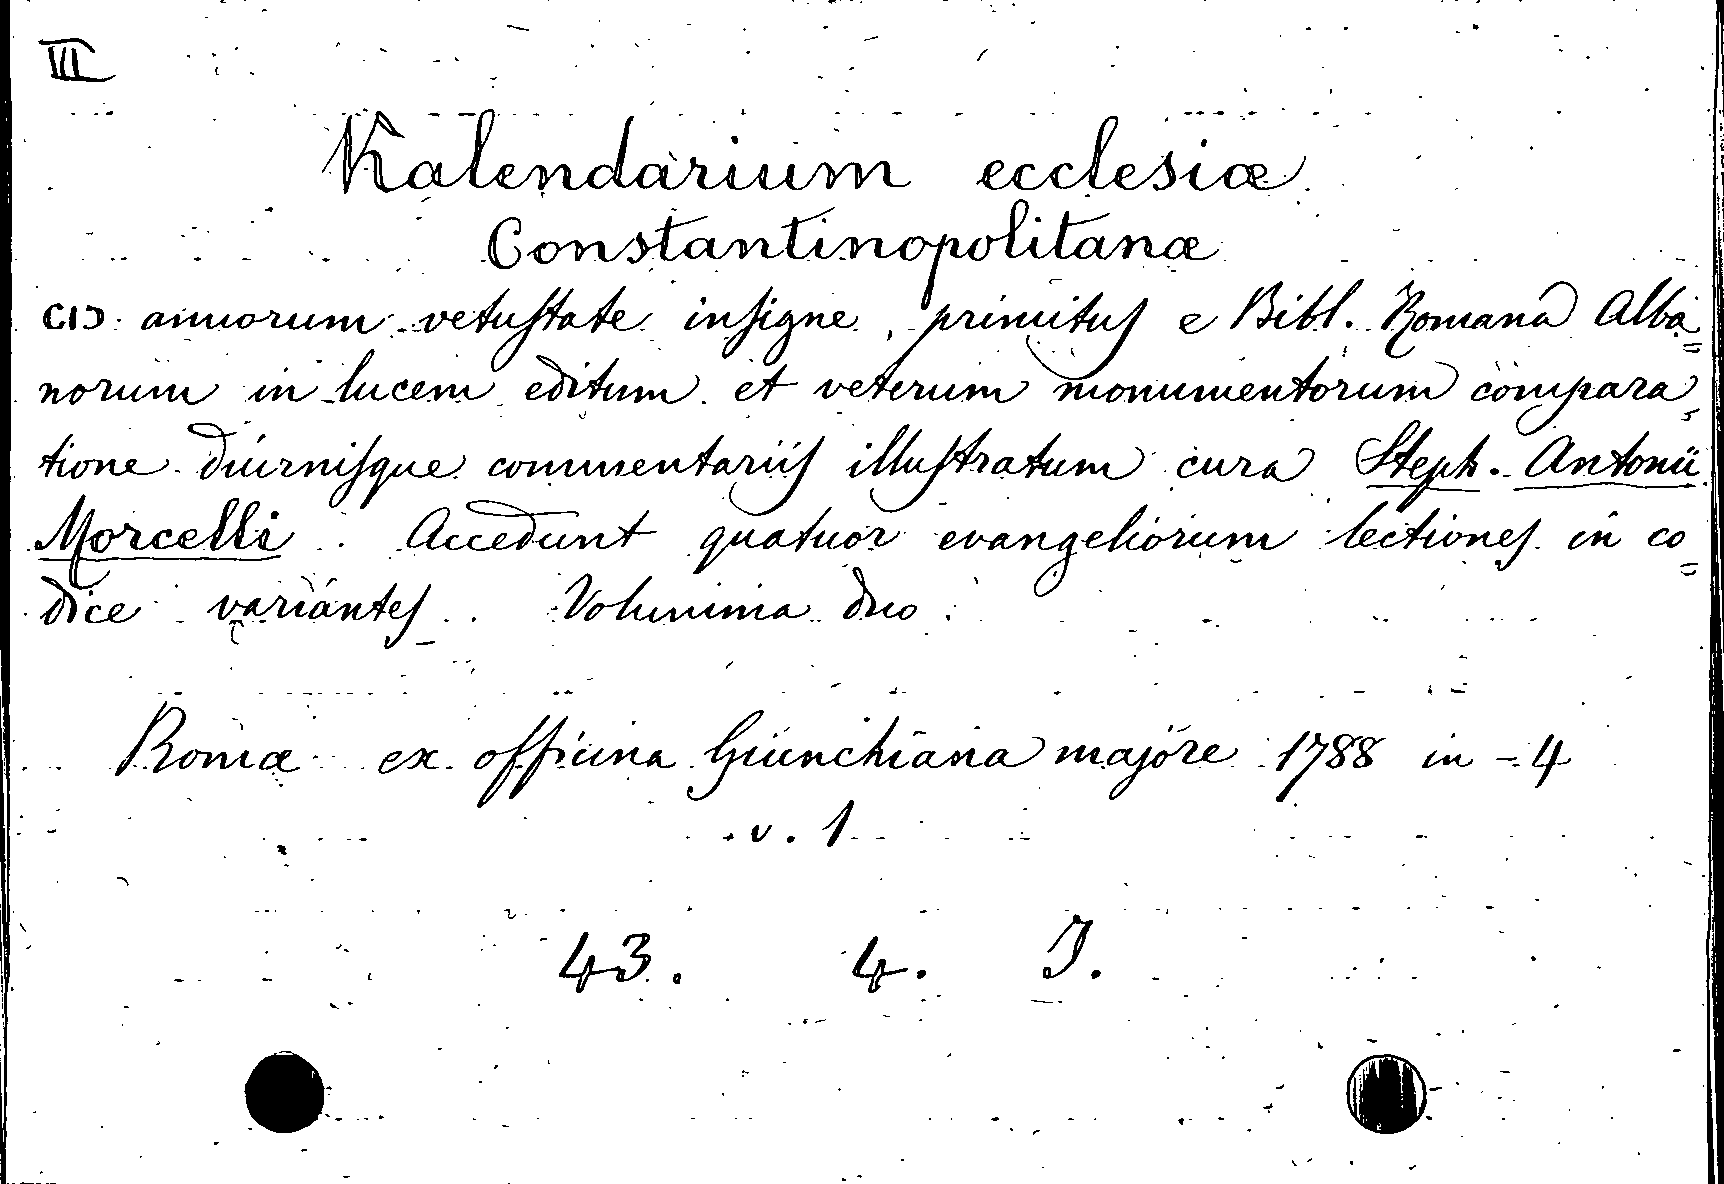 VII
Kalendarium ecclesiæ
Constantinopolitanæ
CIↃ annorum vetuſtate inſigne, primituſ e Bibl. Romana Alba=
norum in lucem editum et veterum monumentorum compara=
tione diurniſque commentariiſ illuſtratum cura Steph. Antonii
Morcelli. Accedunt quatuor evangeliorum lectioneſ in co=
dice varianteſ. Volumina duo.
Romæ ex officina Giunchiana majore 1788 in-4
v. 1
43. 4. I.